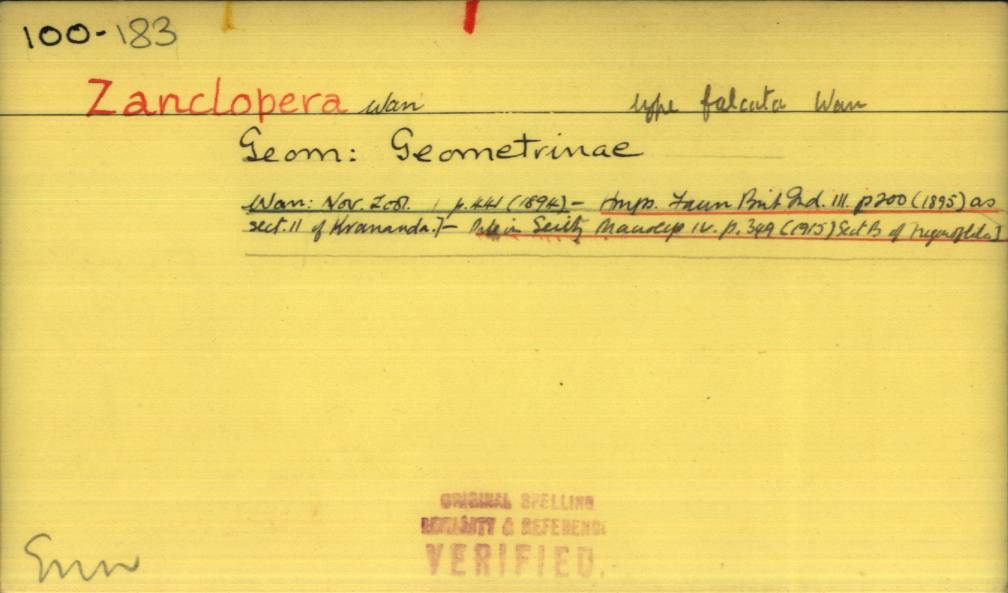 100-183
Zanclopera Warr type falcata Warr
Geom: Geometrinae
Warr: Nov. Zool. 1 p. 441 (1894) - Hmps. Faun Brit Ind. III. p 200 (1895) as
sect. II of Krananda.] - in Seitz Macrolep IV. p. 349 (1915) Sect B. of
ORIGINAL SPELLING
& REFERENCE
VERIFIED.